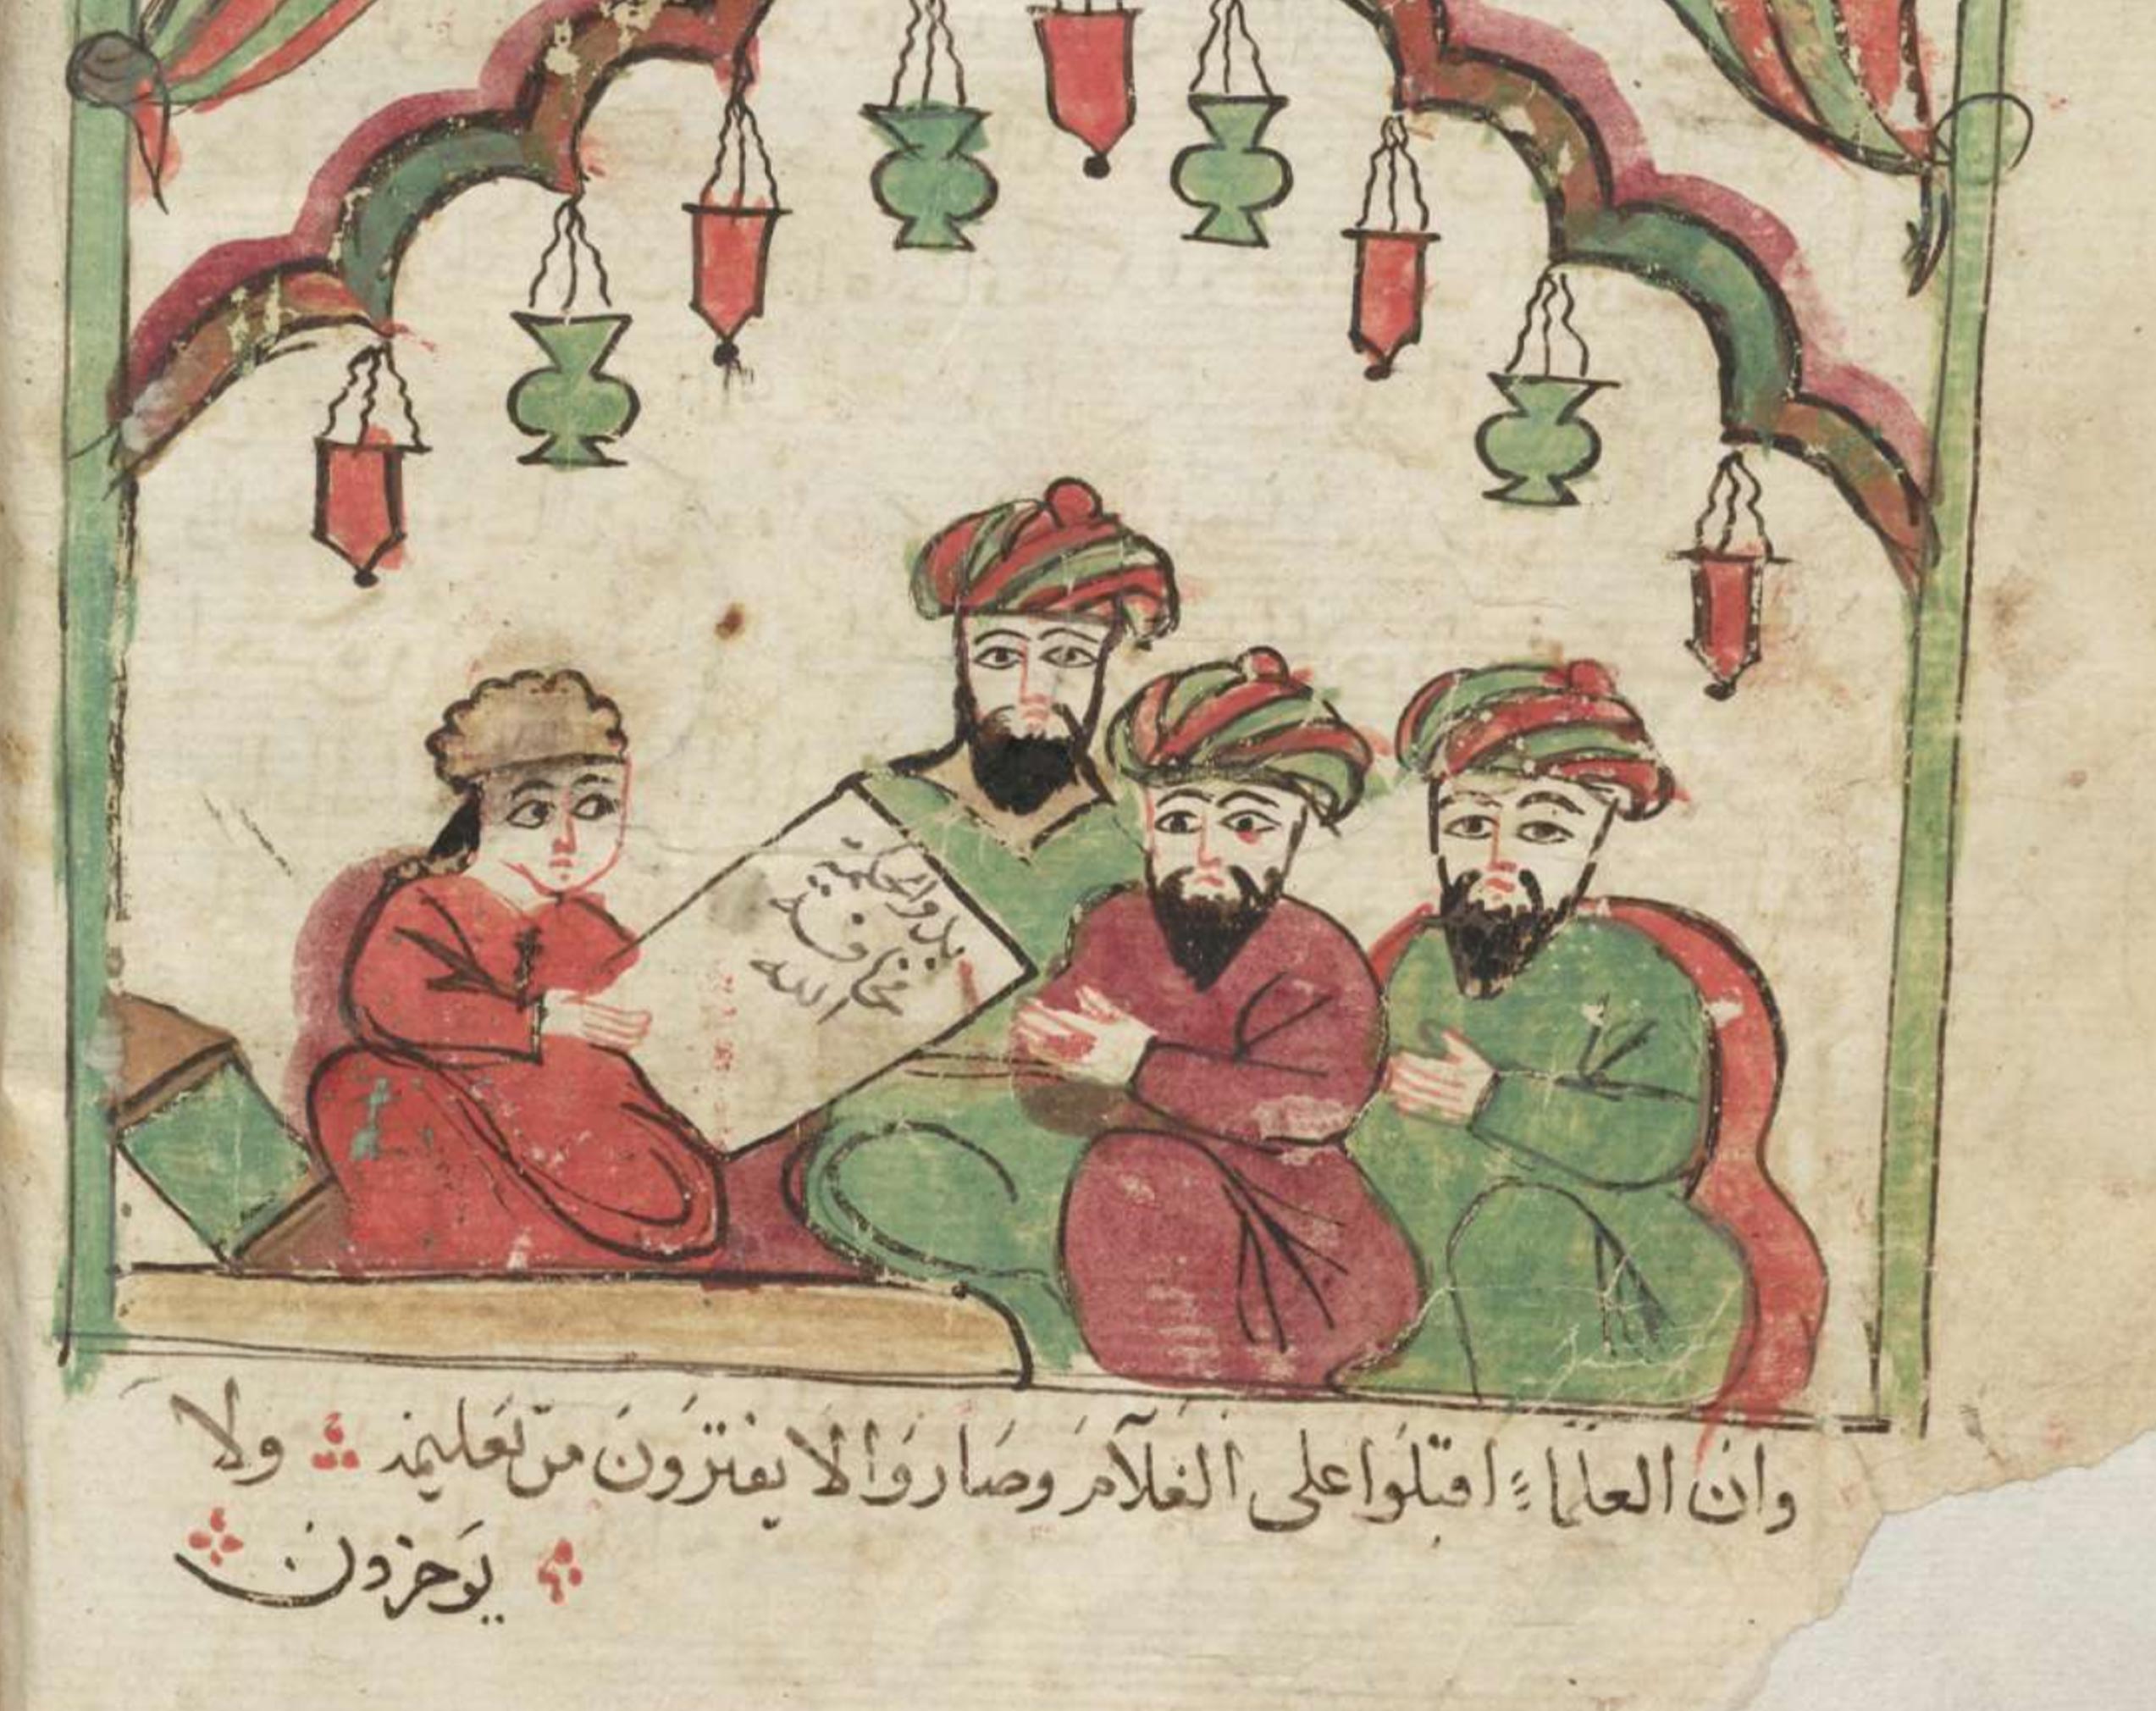 بدو الحكمة
مخافة
الله
وان العلماء اقبلوا على الغلام وصاروا لا يفترون من تعليمه ولا
يوخرون